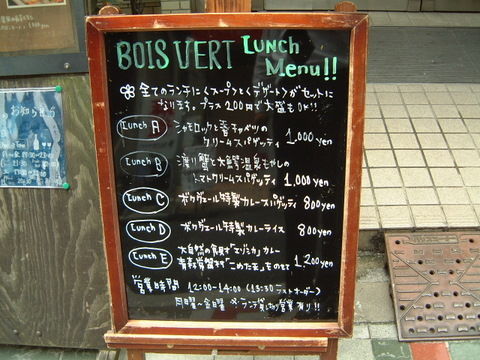 BOIS VERT Lunch Menu!!
全てのランチに<スープ>と<デザート>がセットに
なります。プラス200円で大盛もOK!!
Lunch A
シャモロックと春キャベツの
クリームスパゲッティ 1,000yen
Lunch B
渡り蟹と大鰐温泉もやしの
トマトクリームスパゲッティ 1,000yen
Lunch C
ボワヴェール特製カレースパゲッティ 800yen
Lunch D
ボワヴェール特製カレーライス 800yen
Lunch E
大自然の食材「エゾシカ」カレー
青森常盤村「こめたま」ものせて 1,200yen
営業時間 12:00-14:00 (13:30ラストオーダー)
月曜~金曜 ※ランチ貸し切り営業有り!!
お知らせ